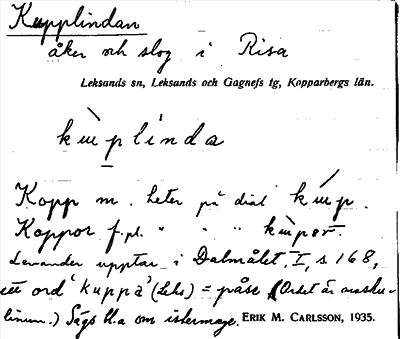 Kupplindan
åker och slog i Risa
Leksands sn, Leksands och Gagnefs tg, Kopparbergs län.
kùplinda
Kopp m. heter på dial kúp.
Koppor f. pl. " " " kùpor.
Levander upptar i Dalmålet, I, s 168,
ett ord 'kuppa' (Leks) = påse (Ordet är masku-
linum.) Sägs bl.a om istermage. ERIK M. CARLSSON, 1935.